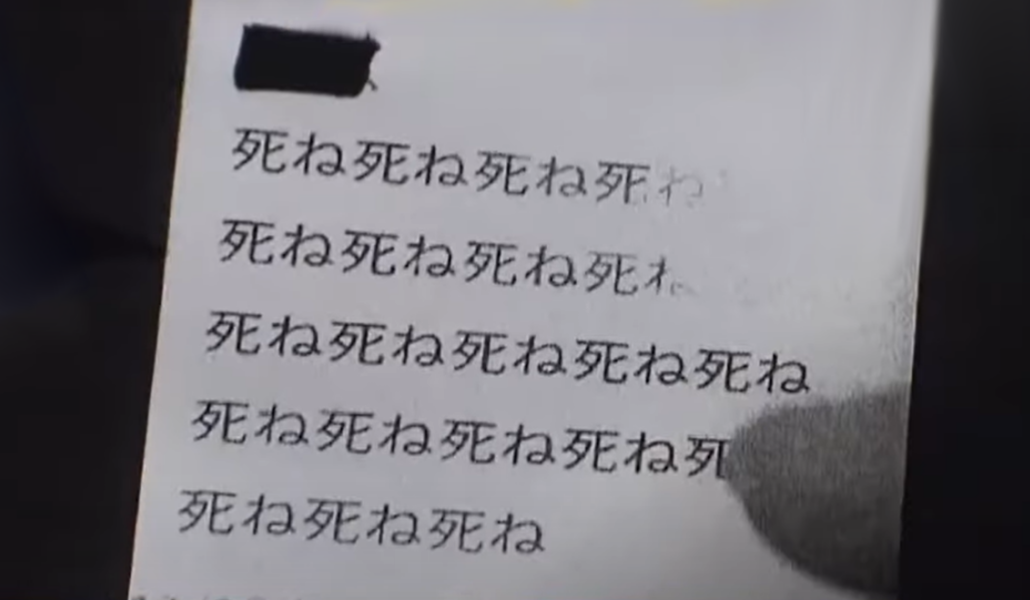 死ね死ね死ね死ね
死ね死ね死ね死
死ね死ね死ね死ね死ね
死ね死ね死ね死ね死
死ね死ね死ね